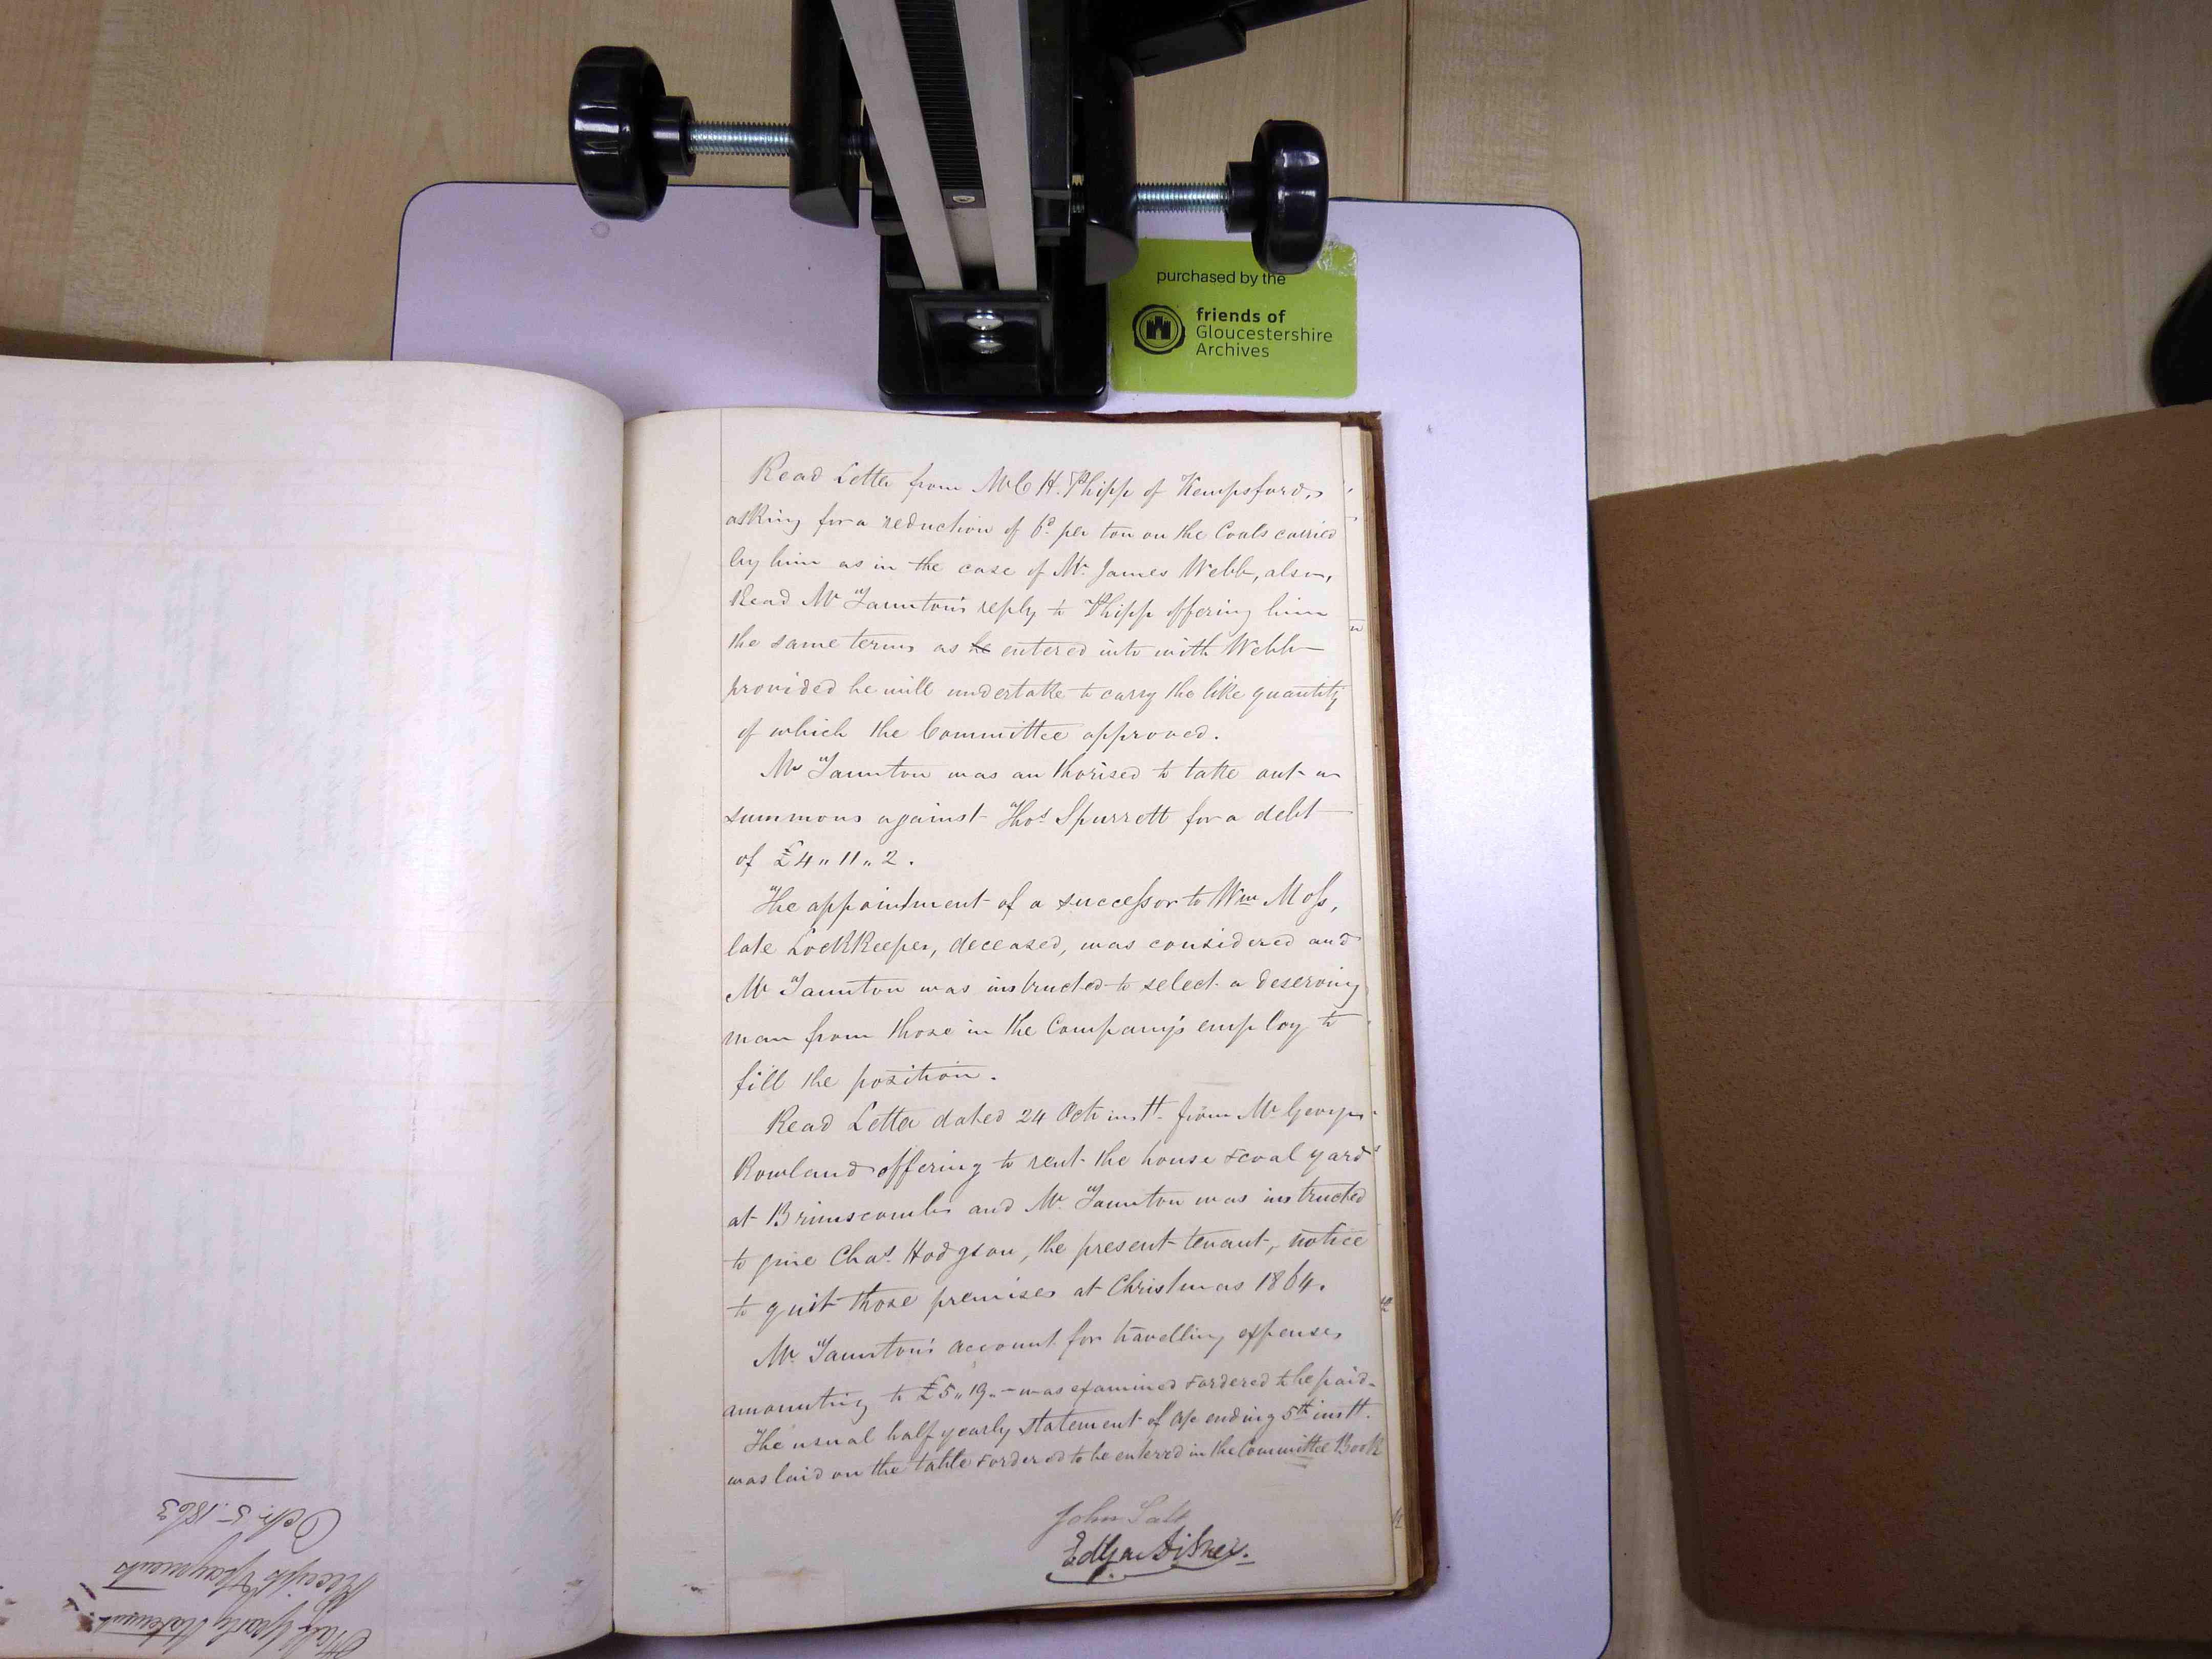 purchased by the
friends of
Gloucestershire
Archives
Read Letter from Mr C H. Phipp of Kempsford,
asking for a reduction of 6d. per ton on the Coals carried
by him as in the case of Mr. James Webb, also,
Read Mr Taunton's reply to Phipp offering him
the same terms as he entered into with Webb
provided he will undertake to carry the like quantity
of which the Committee approved.
Mr Taunton was authorised to take out a
summons against Thos. Spurrett for a debt
of £4 " 11 " 2.
The appointment of a successor to Wm Moss,
late Lockkeeper, deceased, was considered and
Mr Taunton was instructed to select a deserving
man from those in the Company's employ to
fill the position.
Read Letter dated 24 Oct. instt. from Mr George
Rowland offering to rent the house & coal yard
at Brimscomb and Mr. Taunton was instructed
to give Chas. Hodgson, the present tenant, notice
to quit those premises at Christmas 1864.
Mr. Taunton's account for travelling expenses
amounting to £5 " 19 " - was examined & ordered to be paid.
The usual half yearly statement of a/c ending 5th instt.
was laid on the table & ordered to be entered in the Committee Book
John Salt
Edgar Disney.
Half Yearly Statement
Receipts & Payments
Oct. 5. 1863